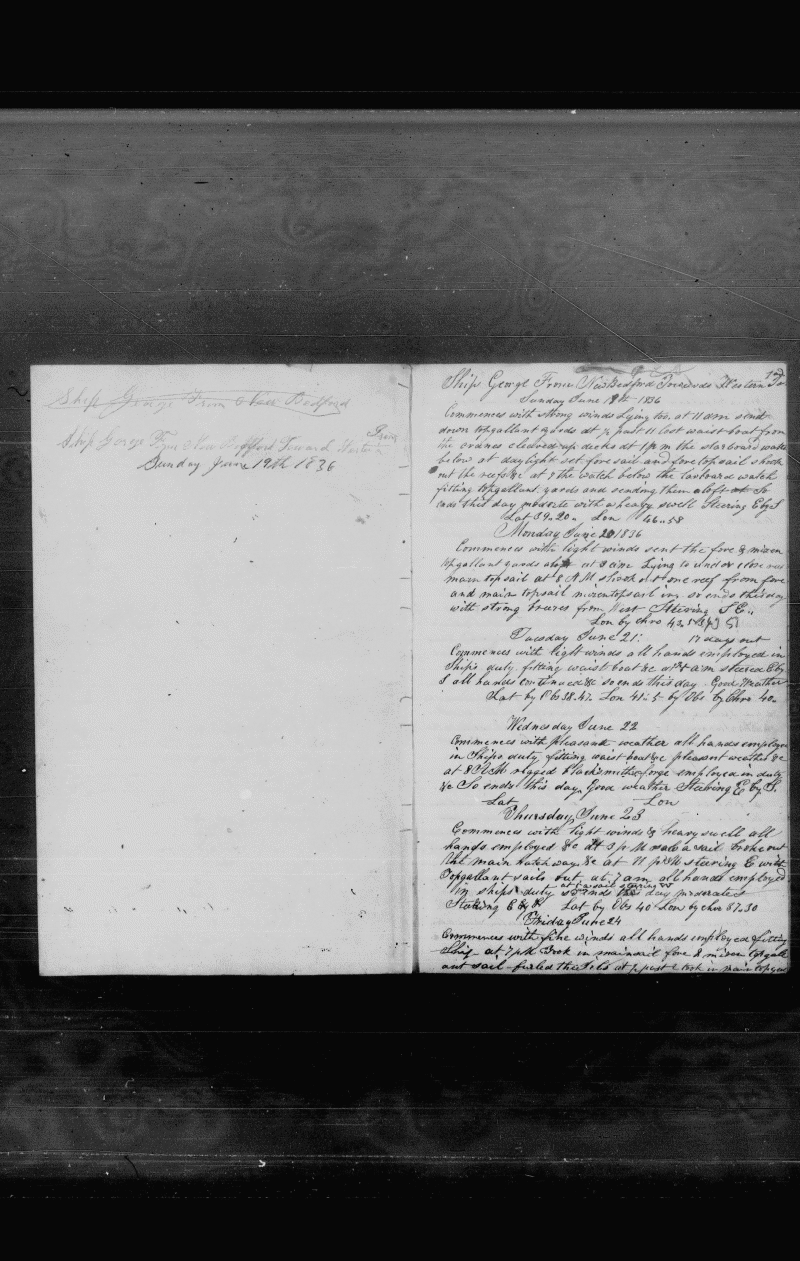 Ship George From New Bedford
Ship George From New Bedford Toward Western
Sunday June 19th 1836
Ship George From New Bedford Towards Western
Sunday June 19th 1836
Commences with strong winds Lying too. at 11 am send
down topgallant yards at ½ past 11 lost waist boat from
the cranes cleared up decks at 1 pm the starboard watch
below at daylight set fore sail and fore topsail shook
out the reefs &c at 7 the watch below the larboard watch
fitting topgallant yards and sending them aloft So
ends this day moderate with a heavy swell Steering E by S
Lat 39..20.. Lon 46..58
Monday June 20 1836
Commences with light winds sent the fore & mizen
topgallant yards aloft at 9 Lying to under close
main topsail at 8 AM shook out one reef from fore
and main topsail mizentopsail so ends this day
with strong from West Steering S E..
Lon by chro 43..
Tuesday June 21: 17 days out
Commences with light winds all hands employed in
Ships duty fitting waist boat &c at am steered E by
S all hands continued &c so ends this day. Good Weather
Lat by Obs 38.47. Lon 41..5 by Obs by Chro 40..
Wednesday June 22
Commences with pleasant weather all hands employed
in Ships duty fitting waist boat &c pleasant weather &c
at 8 AM rigged Blacksmiths forge employed in duty
&c So ends this day. Good weather Steering E by S.
Lat Lon
Thursday June 23
Commences with light winds & heavy swell all
hands employed &c At 3 p M made a sail broke out
the main hatch way &c at 11 p M steering E with
Topgallant sails out at 7 am all hands employed
in ships duty so ends this day moderate
at a sail steering
Steering E by Lat by Obs 40 Lon by chro 37..30
Friday June 24
Commences with fine winds all hands employed fitting
Ship at 7 p M Took in mainsail fore & mizen topgall
ant sail furled the Jib at ½ past took in main topgall